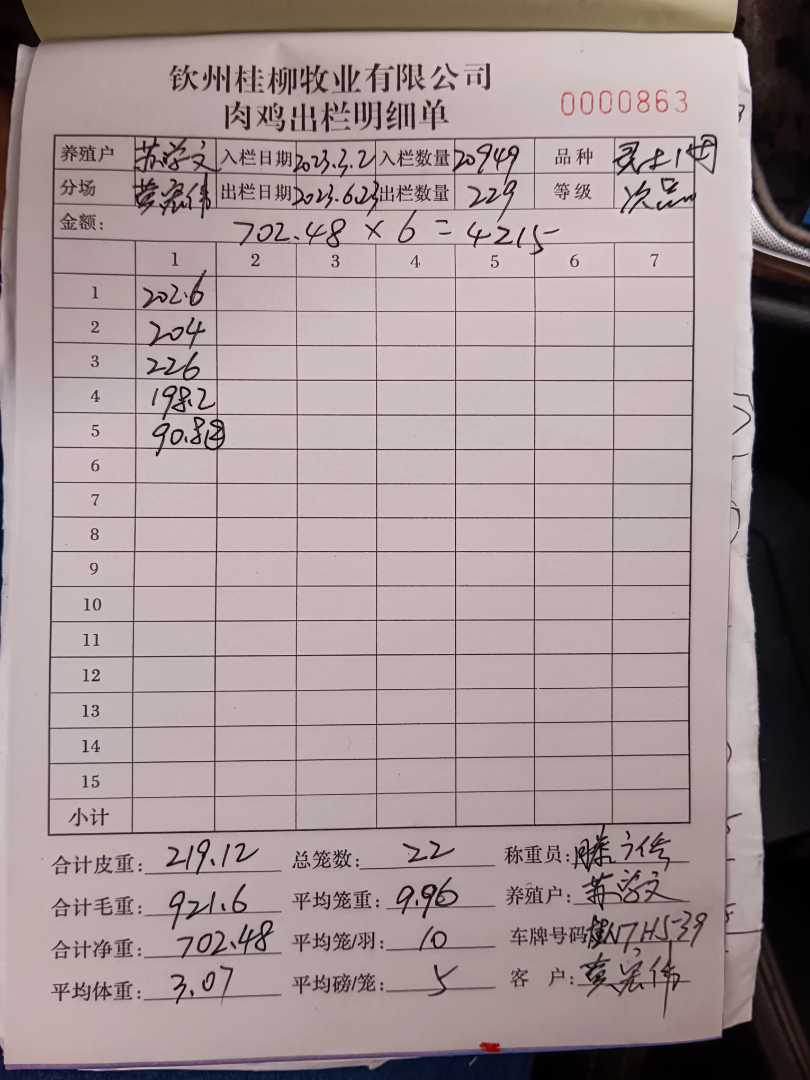 钦州桂柳牧业有限公司
肉鸡出栏明细单
0000863
养殖户 苏学文 入栏日期 2023.3.2 入栏数量 20949 品种 灵土1
分场 黄宏伟 出栏日期 2023.6.23 出栏数量 229 等级 次品
金额: 702.48 × 6 = 4215
1 2 3 4 5 6 7
1 202.6
2 204
3 226
4 198.2
5 90.8 ②
6
7
8
9
10
11
12
13
14
15
小计
合计皮重: 219.12 总笼数: 22 称重员:
合计毛重: 921.6 平均笼重: 9.96 养殖户: 苏学文
合计净重: 702.48 平均笼/羽: 10 车牌号码: 桂N7H539
平均体重: 3.07 平均磅/笼: 5 客 户: 黄宏伟